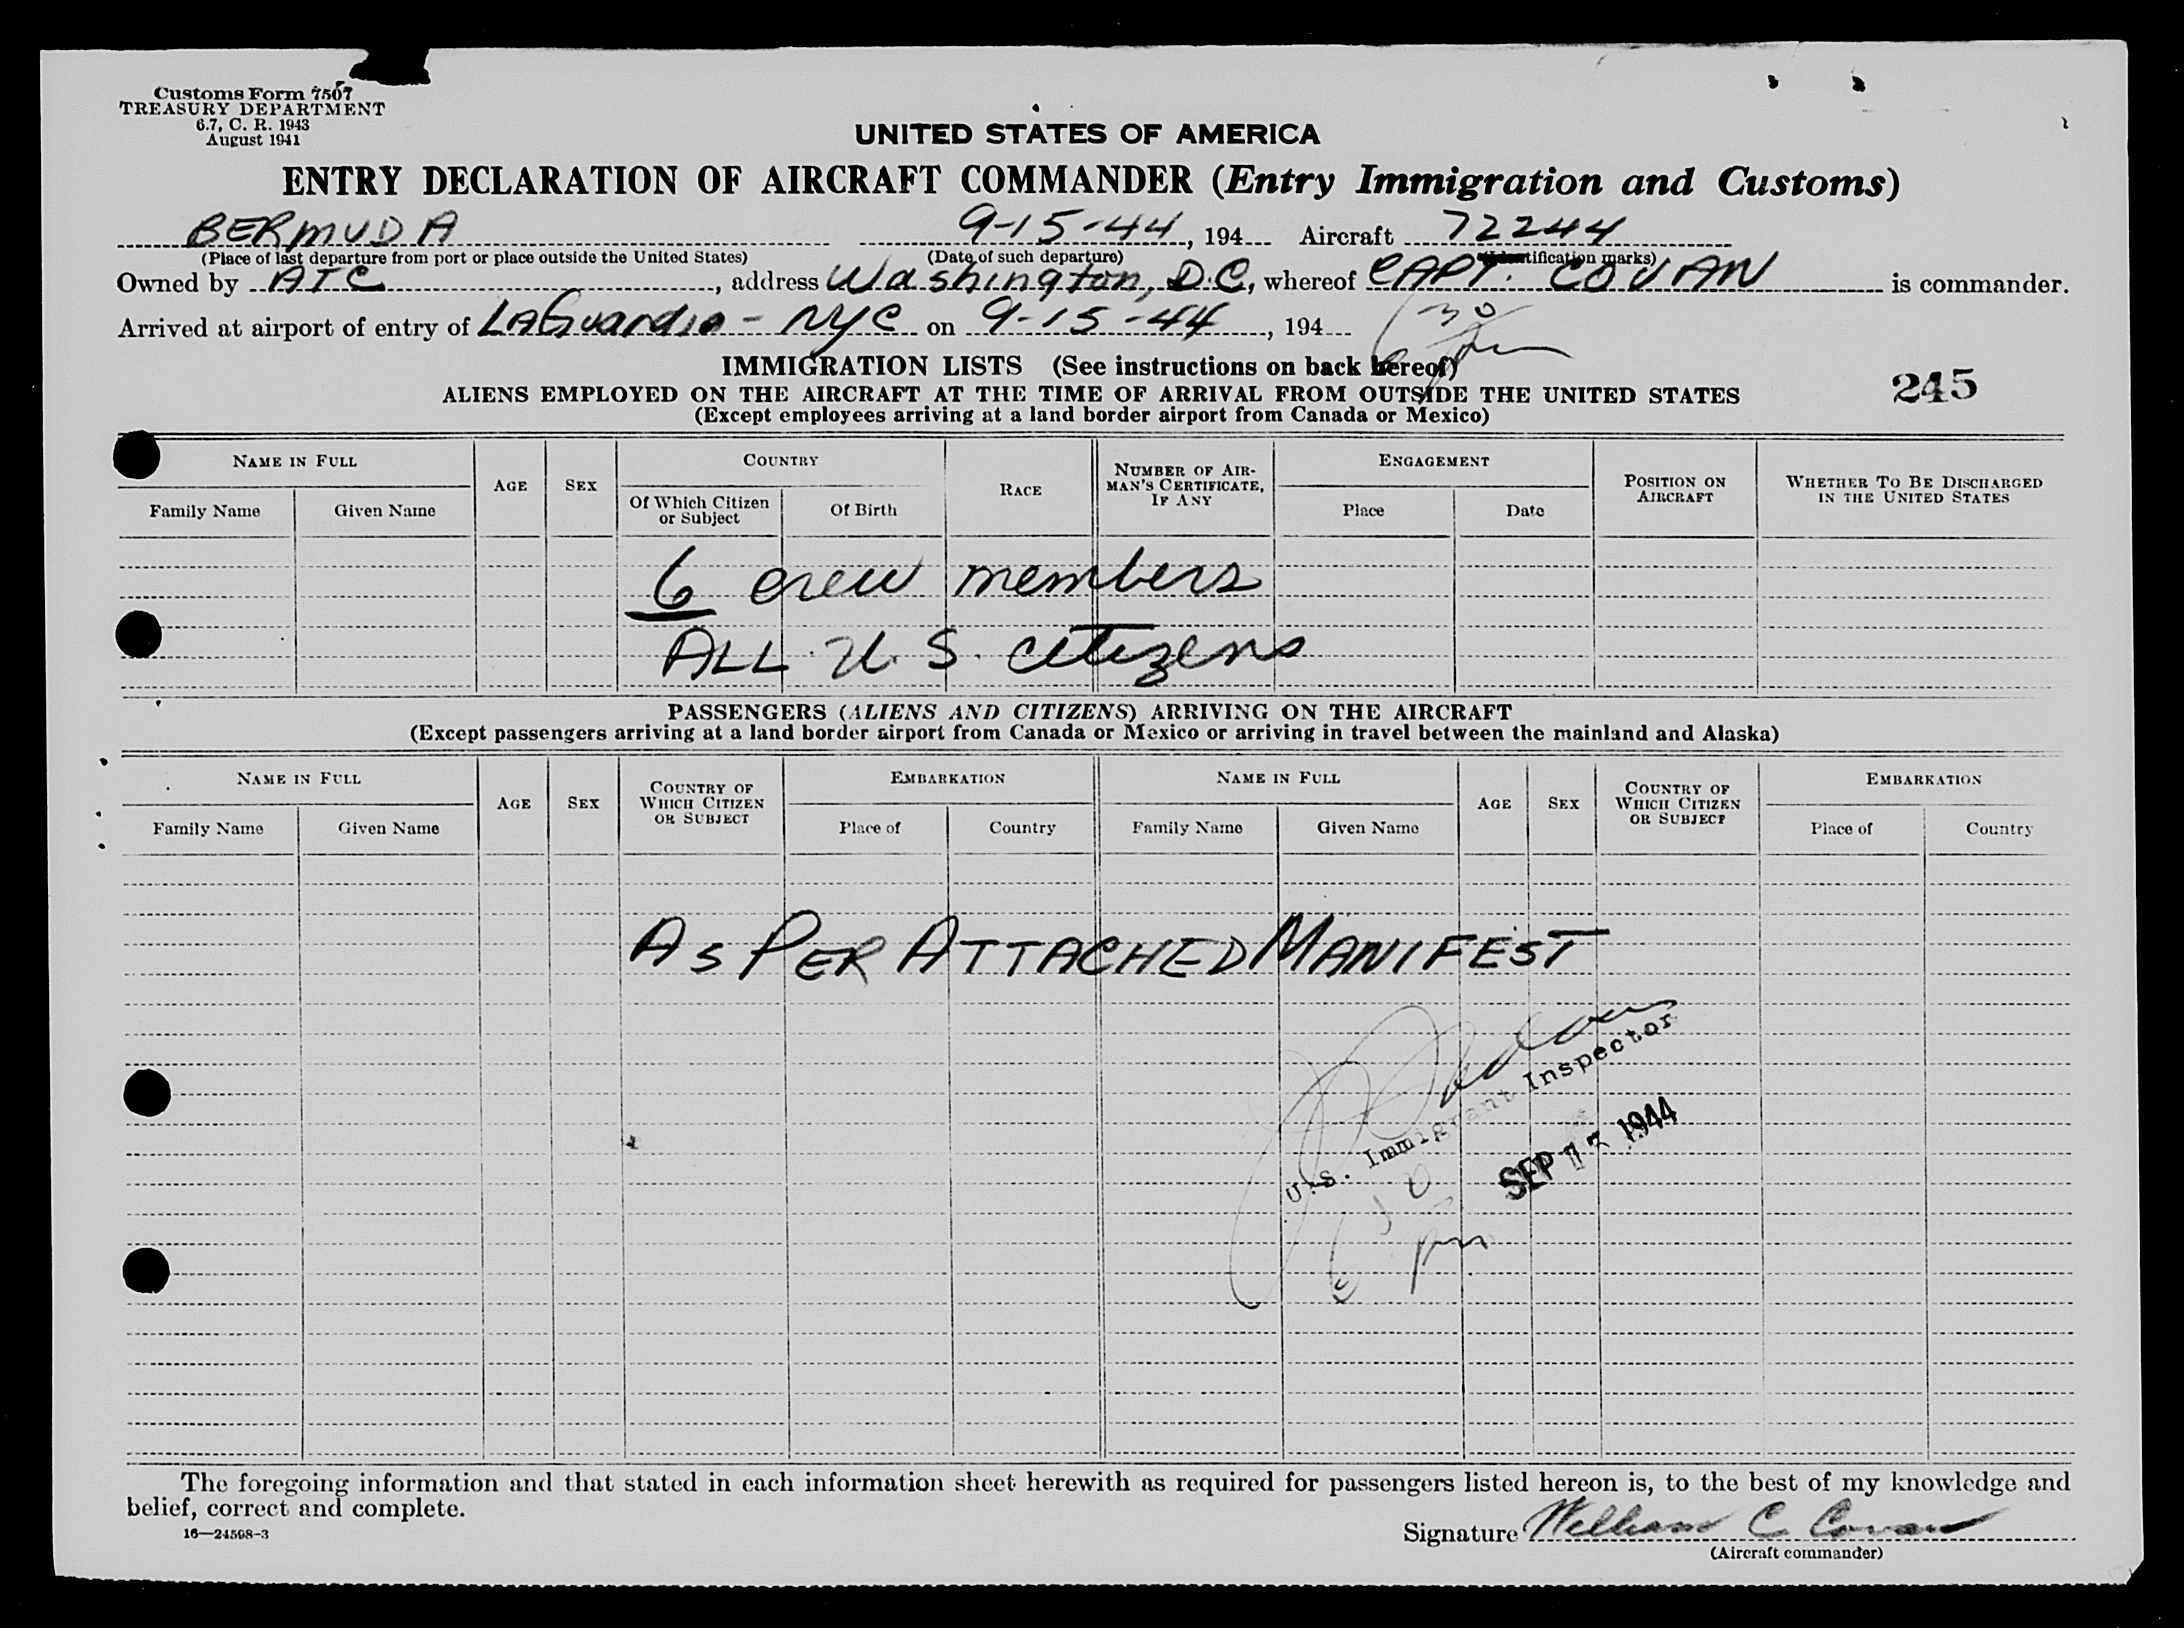 Customs Form 7507
TREASURY DEPARTMENT
6.7, C. R. 1943
August 1941
UNITED STATES OF AMERICA
ENTRY DECLARATION OF AIRCRAFT COMMANDER (Entry Immigration and Customs)
BERMUDA 9-15-44, 194 Aircraft 72244
(Place of last departure from port or place outside the United States) (Date of such departure) (Identification marks)
Owned by ATC, address Washington, D.C., whereof CAPT. COVAN is commander.
Arrived at airport of entry of LaGuardia - NYC on 9-15-44, 194
6 30 pm
IMMIGRATION LISTS (See instructions on back hereof)
ALIENS EMPLOYED ON THE AIRCRAFT AT THE TIME OF ARRIVAL FROM OUTSIDE THE UNITED STATES
245
(Except employees arriving at a land border airport from Canada or Mexico)
NAME IN FULL AGE SEX COUNTRY RACE NUMBER OF AIRMAN'S CERTIFICATE, IF ANY ENGAGEMENT POSITION ON AIRCRAFT WHETHER TO BE DISCHARGED IN THE UNITED STATES
Family Name Given Name Of Which Citizen or Subject Of Birth Place Date
6 crew members
ALL U.S. citizens
PASSENGERS (ALIENS AND CITIZENS) ARRIVING ON THE AIRCRAFT
(Except passengers arriving at a land border airport from Canada or Mexico or arriving in travel between the mainland and Alaska)
NAME IN FULL AGE SEX COUNTRY OF WHICH CITIZEN OR SUBJECT EMBARKATION NAME IN FULL AGE SEX COUNTRY OF WHICH CITIZEN OR SUBJECT EMBARKATION
Family Name Given Name Place of Country Family Name Given Name Place of Country
AS PER ATTACHED MANIFEST
U.S. Immigrant Inspector
SEP 17 1944
6 30 pm
The foregoing information and that stated in each information sheet herewith as required for passengers listed hereon is, to the best of my knowledge and
belief, correct and complete.
16—24598-3
Signature William C Covan
(Aircraft commander)